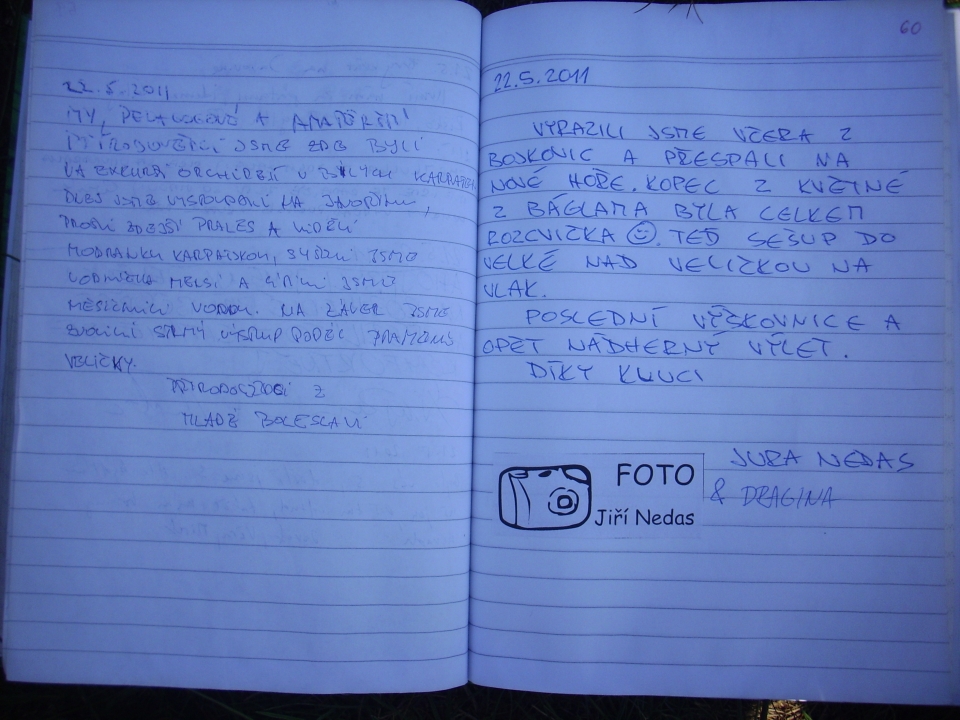 22.5.2011
MY, A AMATÉRŠTÍ
PŘÍRODOVĚDCI JSME ZDE BYLI
NA EXKURZI ORCHIDEJÍ V BÍLÝCH KARPATECH
DNES JSME VYSTOUPALI NA JAVOŘINU,
PROŠLI ZDEJŠÍ PRALES A VIDĚLI
MODRANKU KARPATSKOU, SLYŠELI JSME
A JSME
MĚSÍČNICI VONNOU. NA ZÁVĚR JSME
STRMÝ VÝSTUP PODÉL PRAMENŮ
VELIČKY.
PŘÍRODOVĚDCI Z
MLADÉ BOLESLAVI
60
22.5.2011
VYRAZILI JSME VČERA Z
BOSKOVIC A PŘESPALI NA
NOVÉ HOŘE. KOPEC Z KVĚTNÉ
Z BÁGLAMA BYLA CELKEM
ROZCVIČKA ☺. TEĎ SEŠUP DO
VELKÉ NAD VELIČKOU NA
VLAK.
POSLEDNÍ VÝŠKOVNICE A
OPĚT NÁDHERNÝ VÝLET.
DÍKY KLUCI
JURA NEDAS
& DRAGINA
FOTO
Jiří Nedas